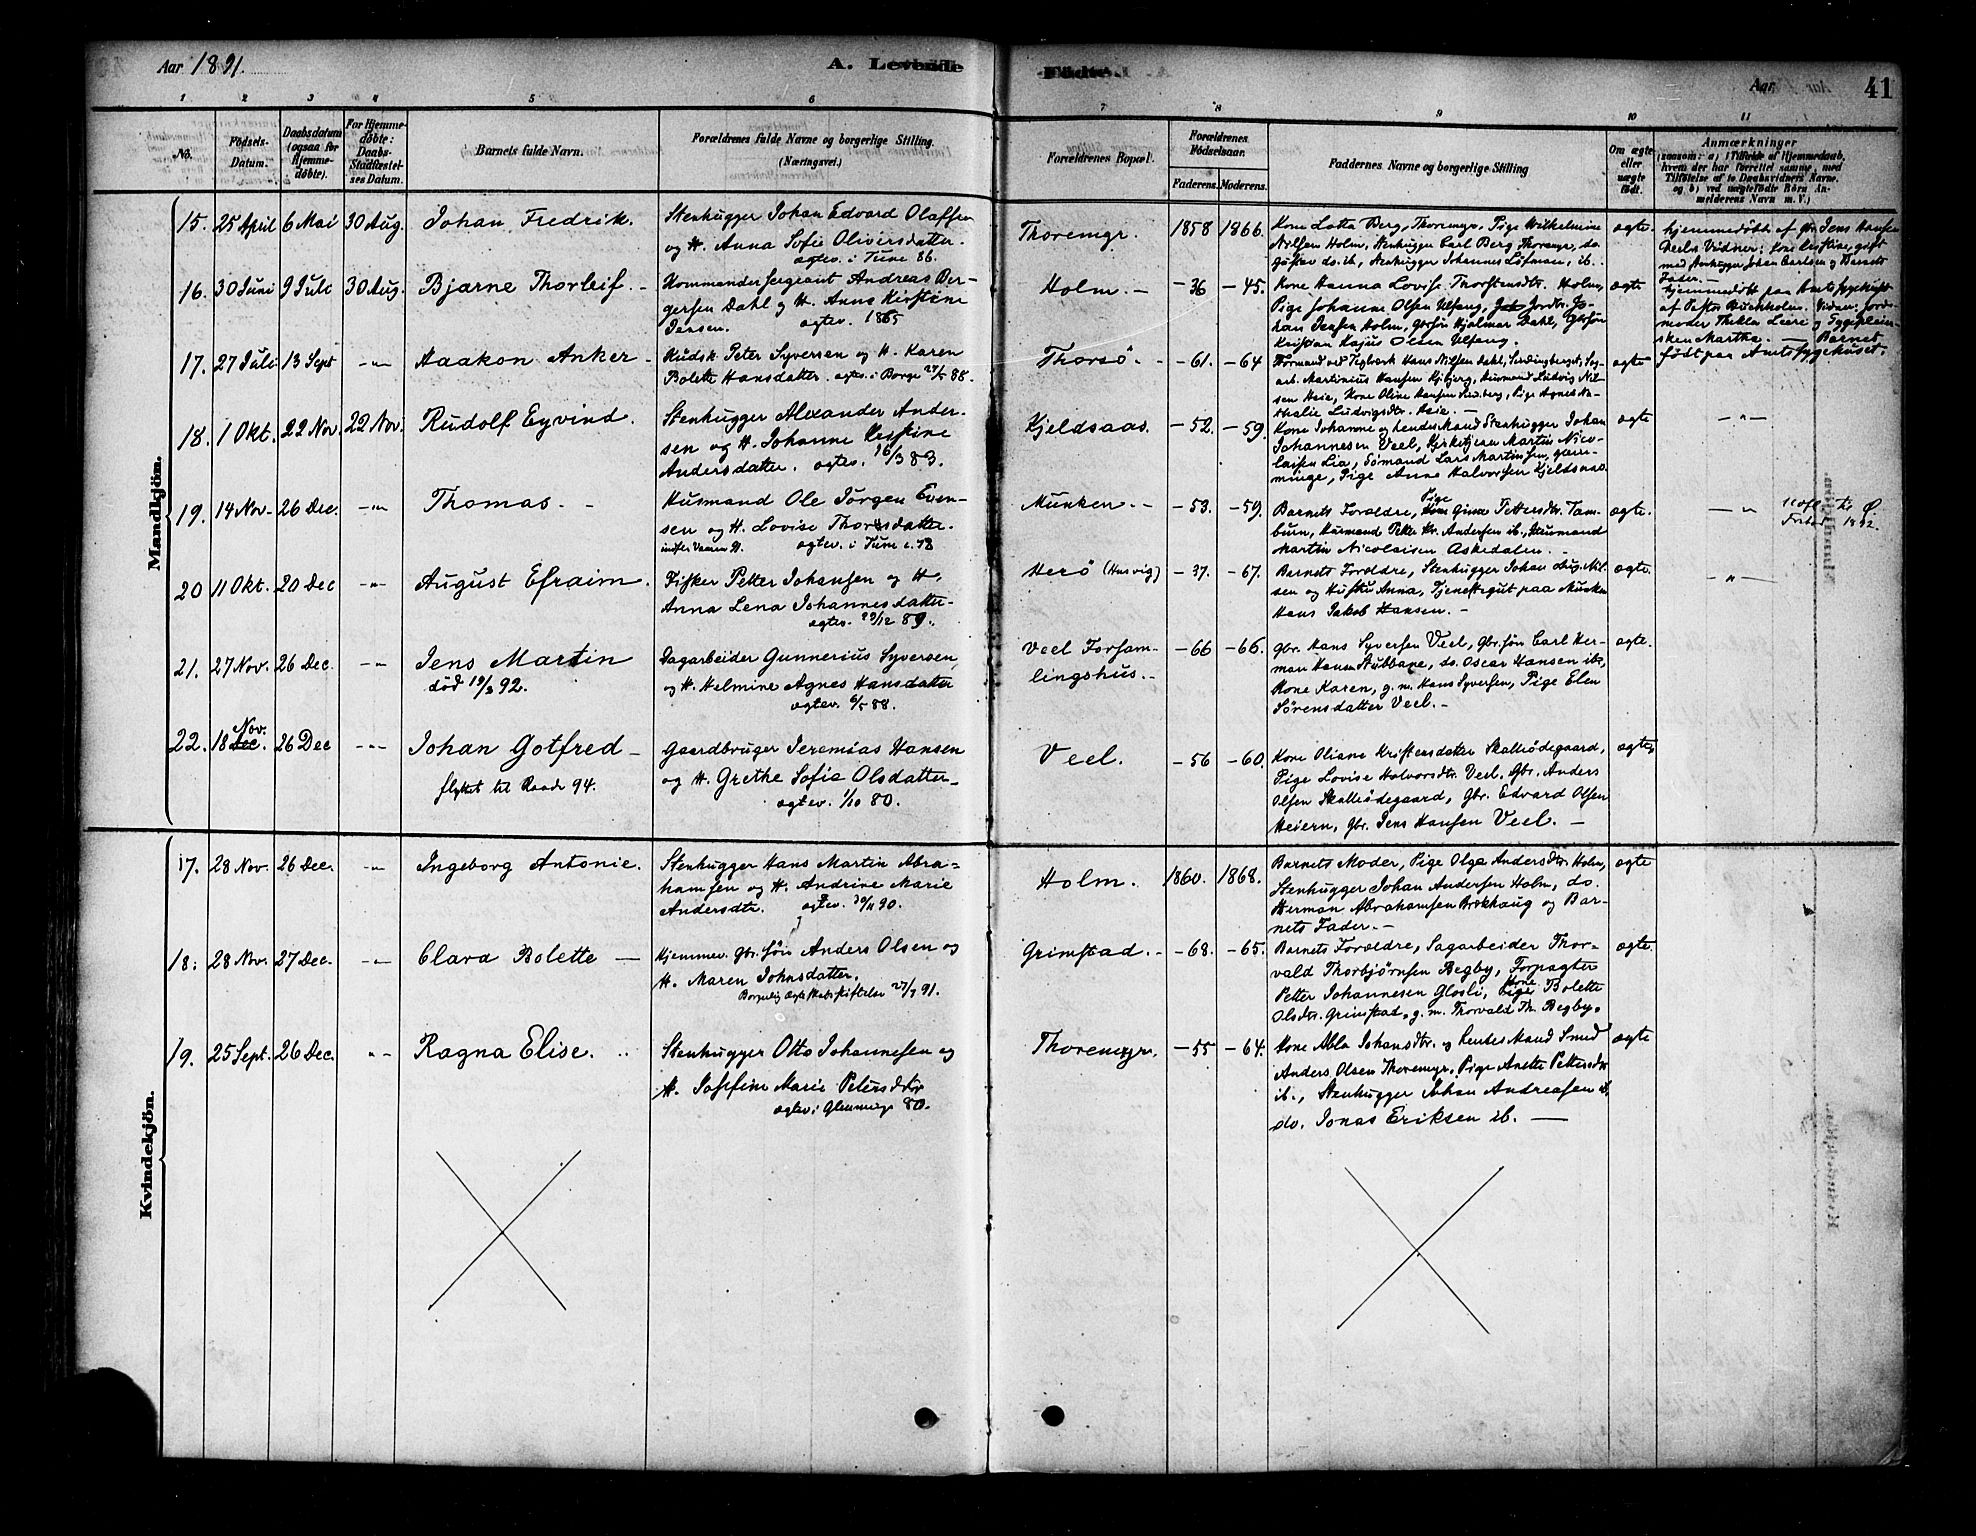 Aar 1891.
A. Levende
Födte.
Aar
41
1 2 3 4 5 6 7 8 9 10 11
No.
Födsels-
Datum.
Daabsdatum
(ogsaa for
Hjemme-
döbte).
For Hjemme-
døbte:
Daabs-
Stadfæstel-
ses Datum.
Barnets fulde Navn.
Forældrenes fulde Navne og borgerlige Stilling.
(Næringsvei.)
Forældrenes Bopæl.
Forældrenes
Födselsaar.
Faderens. Moderens.
Faddernes Navne og borgerlige Stilling
Om ægte
eller
uægte
födt.
Anmærkninger
(saasom: a) i Tilfælde af Hjemmedaab,
hvem der har forrettet samme, med
Tilföielse af to Daabsvidners Navne,
og b) ved uægtefödte Börn An-
melderens Navn m. V.)
Mandkjön.
15. 25 April 6 Mai 30 Aug. Johan Fredrik.
Stenhugger Johan Edvard Olaffen
og H. Anna Sofie Oliversdatter.
agtev. i Tune 86.
Thoremyr. 1858 1866.
Kone Lotta Berg, Thoremyr, Pige Wilhelmine
Nilsen Holm, Stenhugger Carl Berg Thoremyr, do
Gustav do. ib, Stenhugger Johannes Löfman, ib.
agte.
hjemmedöbt af Gbr. Jens Hansen
Veel
med Stenhugger Johan Carlsen og Barnets
Fader. -
16. 30 Juni 9 Juli 30 Aug. Bjarne Thorleif. -
Kommandersergeant Andreas Ber-
gersen Dahl og H. Anne Kirstine
Jensen. agtev. 1865
Holm. - -36 -45.
Kone Hanna Lovise Thorstensdtr. Holm,
Pige Johanne Olsen Ulfeng, Jordbr. Jo-
han Jensen Holm, Gbrsön Hjalmar Dahl, Gbrsön
Kristian Kajus Olsen Ulfeng.
agte
hjemmedöbt paa Amtssygehuset
af Pastor Buchholm. Vidner: Jord-
moder Thekla Liere og Sygepleier-
sken Martha. - Barnet
födt paa Amtssygehuset.
17. 27 Juli 13 Sept -"- Haakon Anker -
Kudsk Peter Syversen og H. Karen
Bolette Hansdatter. agtev. i Borge 27/5 88.
Thorsö. - -61. -64
Formand ved Teglværk Hans Nilsen Dahl,
arb. Martinius Hansen Kjibjerg, Husmand Ludvig Nil-
sen Haie, Kone Oline Hansen Sandberg, Pige Agnes Na-
thalie Ludvigsdtr. Haie. -
agte
18. 1 Okt. 22 Nov. 22 Nov. Rudolf Eyvind.
Stenhugger Alexander Ander-
sen og H. Johanne Kristine
Andersdatter. agtev. 16/3 83.
Kjeldsaas. -52. -59.
Kone Johanne og hendes Mand Stenhugger Johan
Johannesen Veel, Kirketjener Martin Nico-
laisen Lia, Sömand Lars Martinsen, Glem-
minge, Pige Anne Halvorsen Kjeldsaas.
agte
- " -
19. 14 Nov. 26 Dec. -"- Thomas. -
Husmand Ole Jörgen Even-
sen og H. Lovise Thorsdatter.
agtev. i Tune c. 78
Munken. - -53. -59.
Pige
Barnets Foroldre, Gina Pettersdtr. Tam-
burn, Husmand Petter Kr. Andersen ib.,
Martin Nicolaisen Askedalen. -
agte.
- "
1892.
20 11 Okt. 20 Dec -"- August Efraim.
Fisker Petter Johansen og H.
Anna Lena Johannesdatter.
agtev. 23/12 89.
Herö (Husvig) -37. -67.
Barnets Foroldre, Stenhugger Johan Aug. Nil-
sen og Hustru Anna, Tjenestegut paa Munken
Hans Jakob Hansen. -
agte.
- " -
21. 27 Nov. 26 Dec. -"- Jens Martin
död 19/3 92.
Dagarbeider Gunnerius Syversen,
og H. Helmine Agnes Hansdatter
agtev. 6/5 88.
Veel Forsam-
lingshus. - -66 -66.
Gbr. Hans Syversen Veel, Gbr. sön Carl Her-
man Hansen Stubbane, do. Oscar Hansen ib.,
Kone Karen, g. m. Hans Syversen, Pige Elen
Sörensdatter Veel. -
agte.
22. 18 Dec. Nov. 26 Dec -"- Johan Gotfred -
flyttet til Raade 94.
Gaardbruger Jeremias Hansen
og H. Grethe Sofie Olsdatter -
agtev. 1/10 80.
Veel. -56 -60.
Kone Oliane Kristensdatter Skalleödegaard,
Pige Lovise Halvorsdtr. Veel. Gbr. Anders
Olsen Skalleödegaard, Gbr. Edvard Olsen
Heiern, Gbr. Jens Hansen Veel. -
agte
Kvindekjön.
17. 28 Nov. 26 Dec. -"- Ingeborg Antonie.
Stenhugger Hans Martin Abra-
hamsen og H. Andrine Marie
Andersdtr. agtev. 30/11 90.
Holm. 1860. 1868.
Barnets Moder, Pige Olga Andersdtr. Holm,
Stenhugger Johan Andersen Holm, do.
Herman Abrahamsen Brækhaug og Bar-
nets Fader. -
agte
18. 28 Nov. 27 Dec. -"- Clara Bolette -
Hjemmev. Gbr. sön Anders Olsen og
H. Maren Johnsdatter.
Borgerlig Ægteskabsstiftelse 27/7 91.
Grimstad. - -68. -65.
Barnets Foroldre, Sagarbeider Thor-
vald Thorbjörnsen Begby, Forpagter
Petter Johannesen Glosli, Pige Kone Bolette
Olsdtr. Grimstad, g. m. Thorvald Th. Begby.
agte
19. 25 Sept. 26 Dec. -"- Ragna Elise. "
Stenhugger Otto Johannesen og
H. Josefine Marie Petersdtr
agtev. i Glemminge 80.
Thoremyr. -55 -64.
Kone Abla Johansdtr. og hendes Mand Smed
Anders Olsen Thoremyr, Pige Anette Pettersdtr
ib., Stenhugger Johan Andreasen ib,
do. Jonas Eriksen ib. -
agte